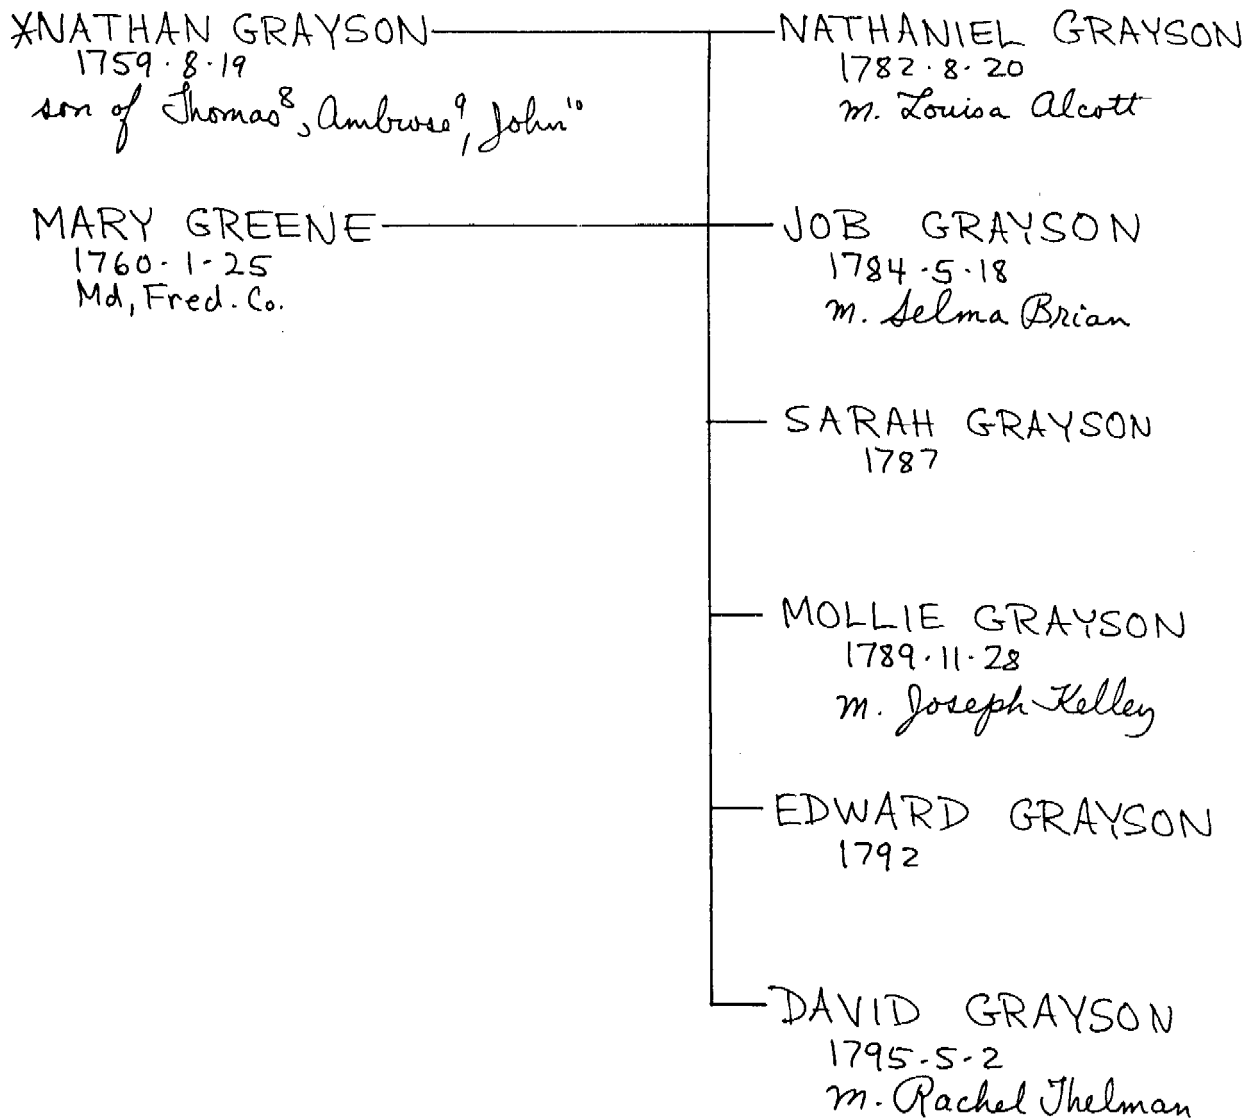 *NATHAN GRAYSON
1759·8·19
son of Thomas⁸, Ambrose⁹, John¹⁰
MARY GREENE
1760·1·25
Md, Fred. Co.
NATHANIEL GRAYSON
1782·8·20
m. Louisa Alcott
JOB GRAYSON
1784·5·18
m. Selma Brian
SARAH GRAYSON
1787
MOLLIE GRAYSON
1789·11·28
m. Joseph Kelley
EDWARD GRAYSON
1792
DAVID GRAYSON
1795·5·2
m. Rachel Thelman